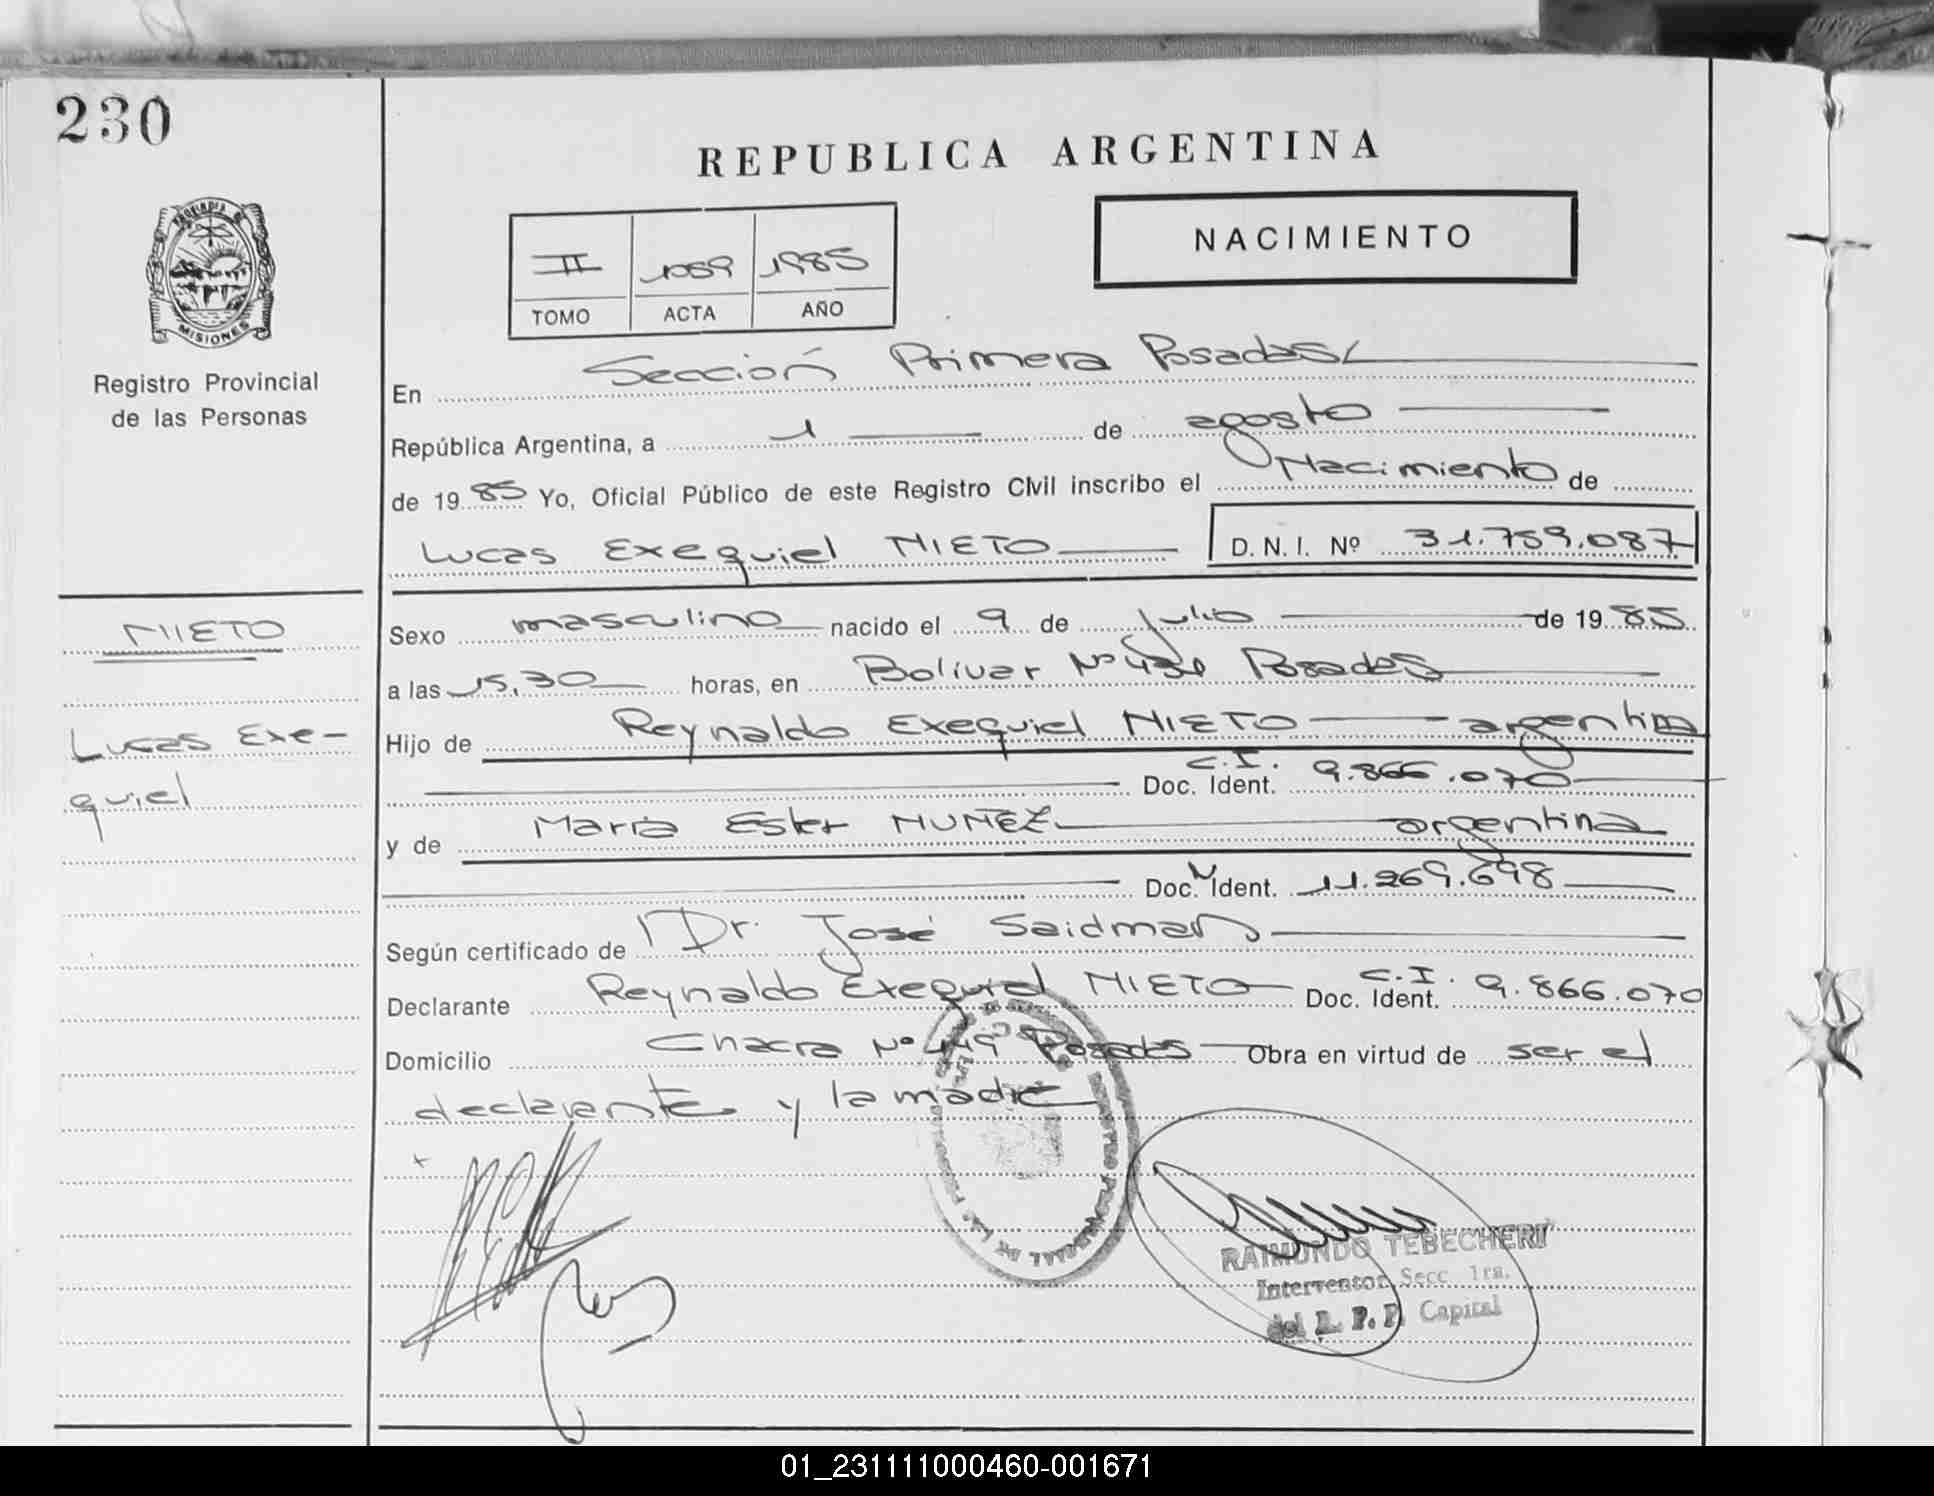 230
REPUBLICA ARGENTINA
NACIMIENTO
II 1059 1985
TOMO ACTA AÑO
PROVINCIA DE
MISIONES
Registro Provincial
de las Personas
En Sección Primera Posadas
República Argentina, a 1 de agosto
de 1985 Yo, Oficial Público de este Registro Civil inscribo el Nacimiento de
Lucas Exequiel NIETO D. N. I. Nº 31.759.087
NIETO
Lucas Exe-
quiel
Sexo masculino nacido el 9 de julio de 1985
a las 15,30 horas, en Bolivar Nº Posadas
Hijo de Reynaldo Exequiel NIETO argentina
C.I.
Doc. Ident. 9.866.070
y de Maria Ester NUÑEZ argentina
Doc. Ident. 11.269.698
Según certificado de Dr. José Saidman
Declarante Reynaldo Exequiel NIETO C.I. Doc. Ident. 9.866.070
Domicilio Chacra Nº Posadas Obra en virtud de ser el
declarante y la madre
RAIMUNDO TEBECHERI
Interventor Secc. 1ra.
del R. P. P. Capital
01_231111000460-001671